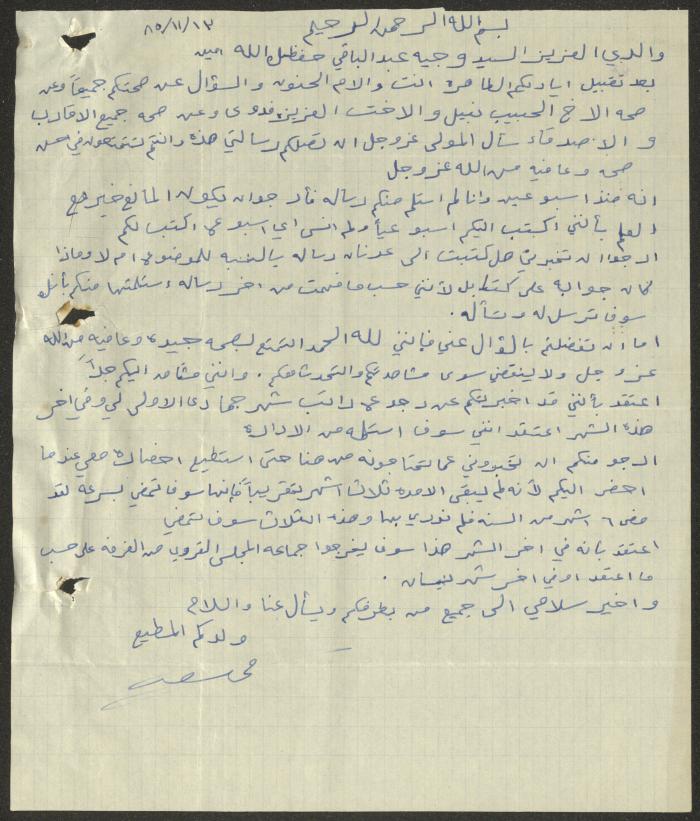 بسم الله الرحمن الرحيم
٨٥/١١/١٣
والدي العزيز السيد وجيه عبد الباقي حفظه الله امين
بعد تقبيل اياديكم الطاهرة انت والام الحنون والسؤال عن صحتكم جميعاً وعن
صحه الاخ الحبيب نبيل والاخت العزيزه فدوى وعن صحه جميع الاقارب
والاصدقاء سأل المولى عز وجل ان تصلكم رسالتي هذه وانتم تتمتعون في احسن
صحه وعافيه من الله عز وجل
انه منذ اسبوعين وانا لم استلم منكم رساله فأرجوا ان يكون المانع خير مع
العلم بأنني اكتب اليكم اسبوعياً ولم انسى اي اسبوع اكتب لكم
ارجوا ان تخبروني هل كتبت الى عدنان رساله بالنسبه للموضوع ام لا وماذا
كان جوابه على كتابك لأنني حسب ما فهمت من اخر رساله استلمتها منكم بأنك
سوف ترسل له وتسأله .
اما ان تفضلتم بالسؤال عني فإنني لله الحمد اتمتع بصحه جيده وعافيه من الله
عز وجل ولا ينقصني سوى مشاهدتكم والتحدث معكم . وانني مشتاق اليكم جداً
اعتقد بأنني قد اخبرتكم عن راتب شهر جمادى الاولى لي وفي اخر
هذه الشهر اعتقد انني سوف استلمه من الاداره
ارجو منكم ان تخبروني عما تحتاجونه من هنا حتى استطيع احضاره معي عندما
احضر اليكم لأنه لم يبقى الا مدة ثلاث اشهر تقريباً فإنها سوف تمضي بسرعه لقد
مضى ٦ اشهر من السنه فلم ندري بها وهذه الثلاث سوف تمضي
اعتقد بانه في اخر الشهر هذا سوف يخرجوا جماعه المجلس القروي من الغرفه على حسب
ما اعتقد او في اخر شهر نيسان .
واخير سلامي الى جميع من بطرفكم ويسأل عنا والسلام
ولدكم المطيع